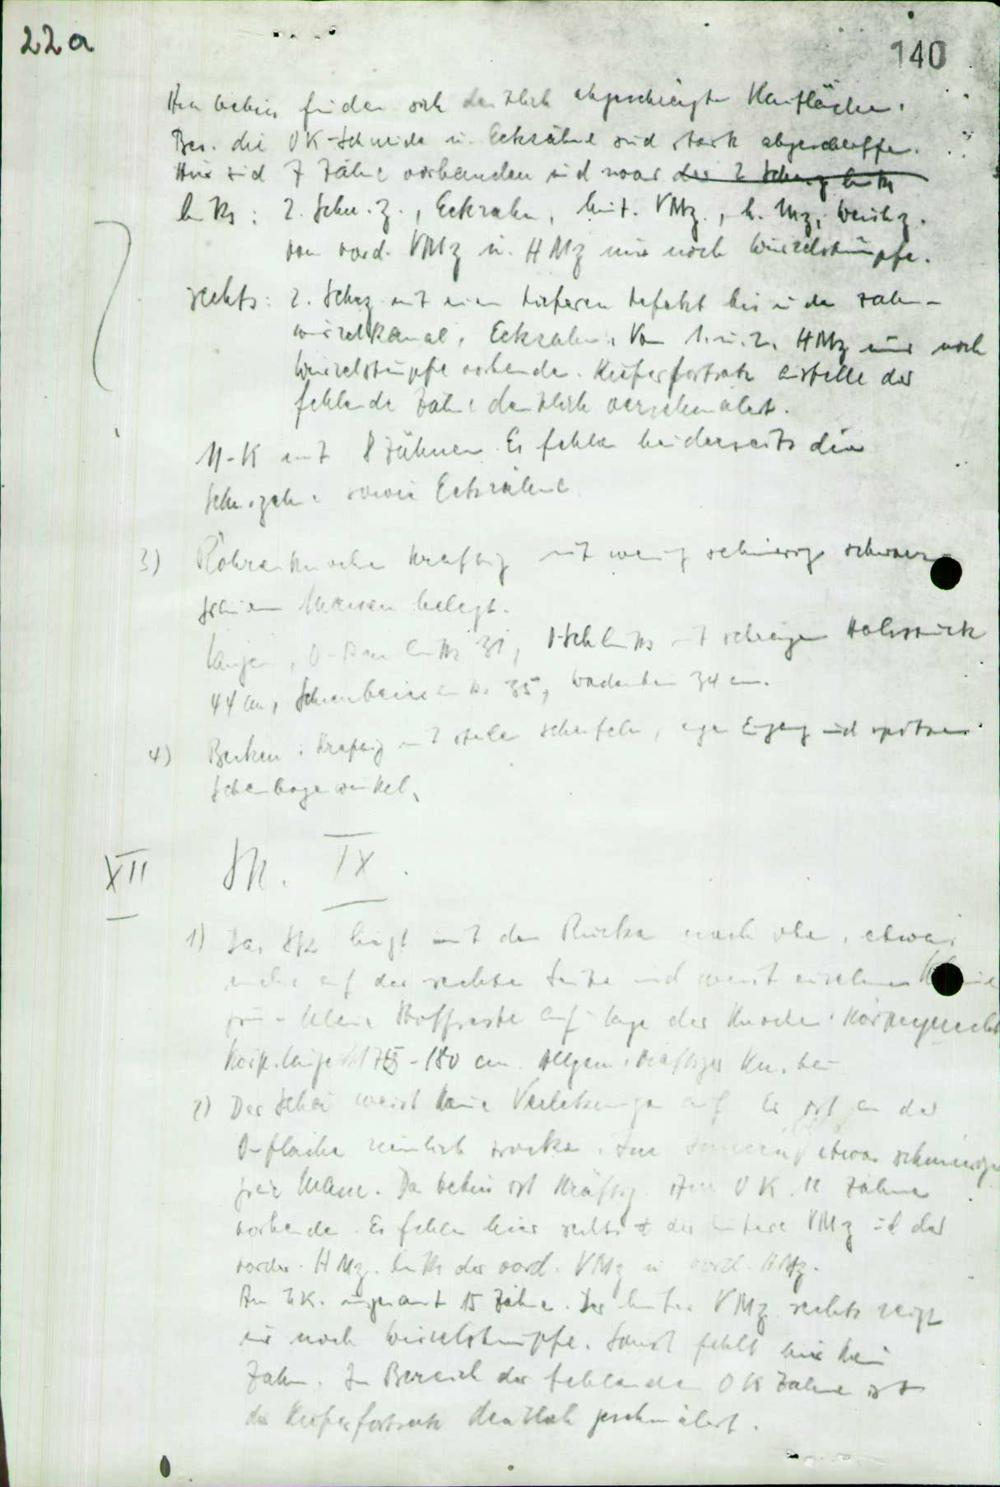 22a
140
finden sich deutlich abgeschrägte Kauflächen.
Bes. die OK-Schneide u. Eckzähne sind stark abgeschliffen.
Hier sind 7 Zähne vorhanden und zwar die 2 Schn.z. links
links: 2. Schn.z., Eckzahn, hint. VMz., h. Mz, Weishz.
von vord. VMz u. HMz nur noch Wurzelstümpfe.
rechts: 2. Schnz mit einem tieferen Defekt bis in den Zahn-
wurzelkanal, Eckzahn. Von 1. u. 2. HMz nur noch
Wurzelstümpfe vorhanden. Kieferfortsatz anstelle der
fehlenden Zähne deutlich verschmälert.
U-K mit 8 Zähnen. Es fehlen beiderseits die
Schn.zähne sowie Eckzähne
3) Röhrenknochen kräftig mit wenig schmierig schwarz
Massen belegt.
Längen, links 31, O-Schl links mit schrägem Halsstück
44 cm, Schienbein links 35, Wadenbein 34 cm.
4) Becken: kräftig mit steilen Schaufeln, engem Eingang und spitzem
Schambogenwinkel.
XII Sk. IX.
1) Das Sk liegt mit dem Rücken nach oben, etwas
mehr auf der rechten Seite und weist einzelne
Stoffreste auf. Lage der Knochen: Körpergerecht
Körp.länge 175-180 cm. Allgem. kräftiger Kn.bau
2) Der Schä weist keine Verletzungen auf. Er ist an der
O-fläche ziemlich trocken. Im etwas schmierige
Masse. Das Gebiss ist kräftig. Im OK 11 Zähne
vorhanden. Es fehlen hier rechts der hintere VMz und der
vordere HMz. links der vord. VMz u. vord. HMz.
Im UK. insgesamt 15 Zähne. Der hintere VMz rechts zeigt
nur noch Wurzelstümpfe. Sonst fehlt hier kein
Zahn. Im Bereich der fehlenden OK Zähne ist
der Kieferfortsatz deutlich geschmälert.